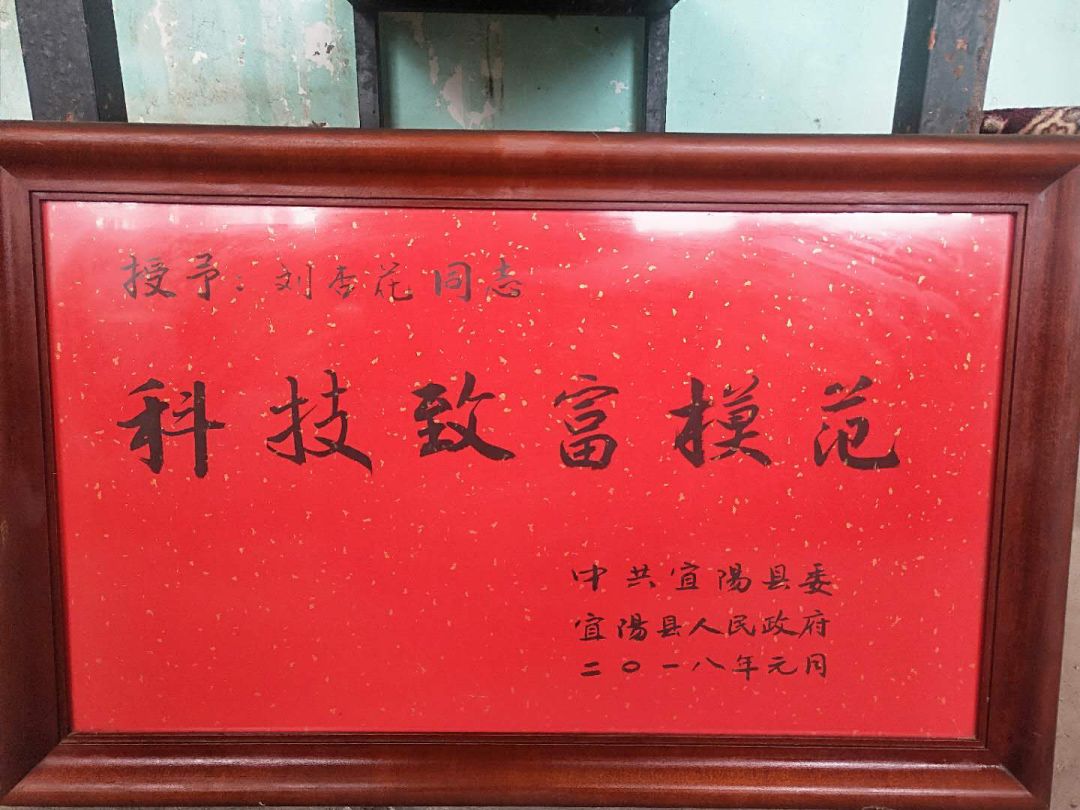 授予：刘杏花同志
科技致富模范
中共宜陽县委
宜陽县人民政府
二〇一八年元月